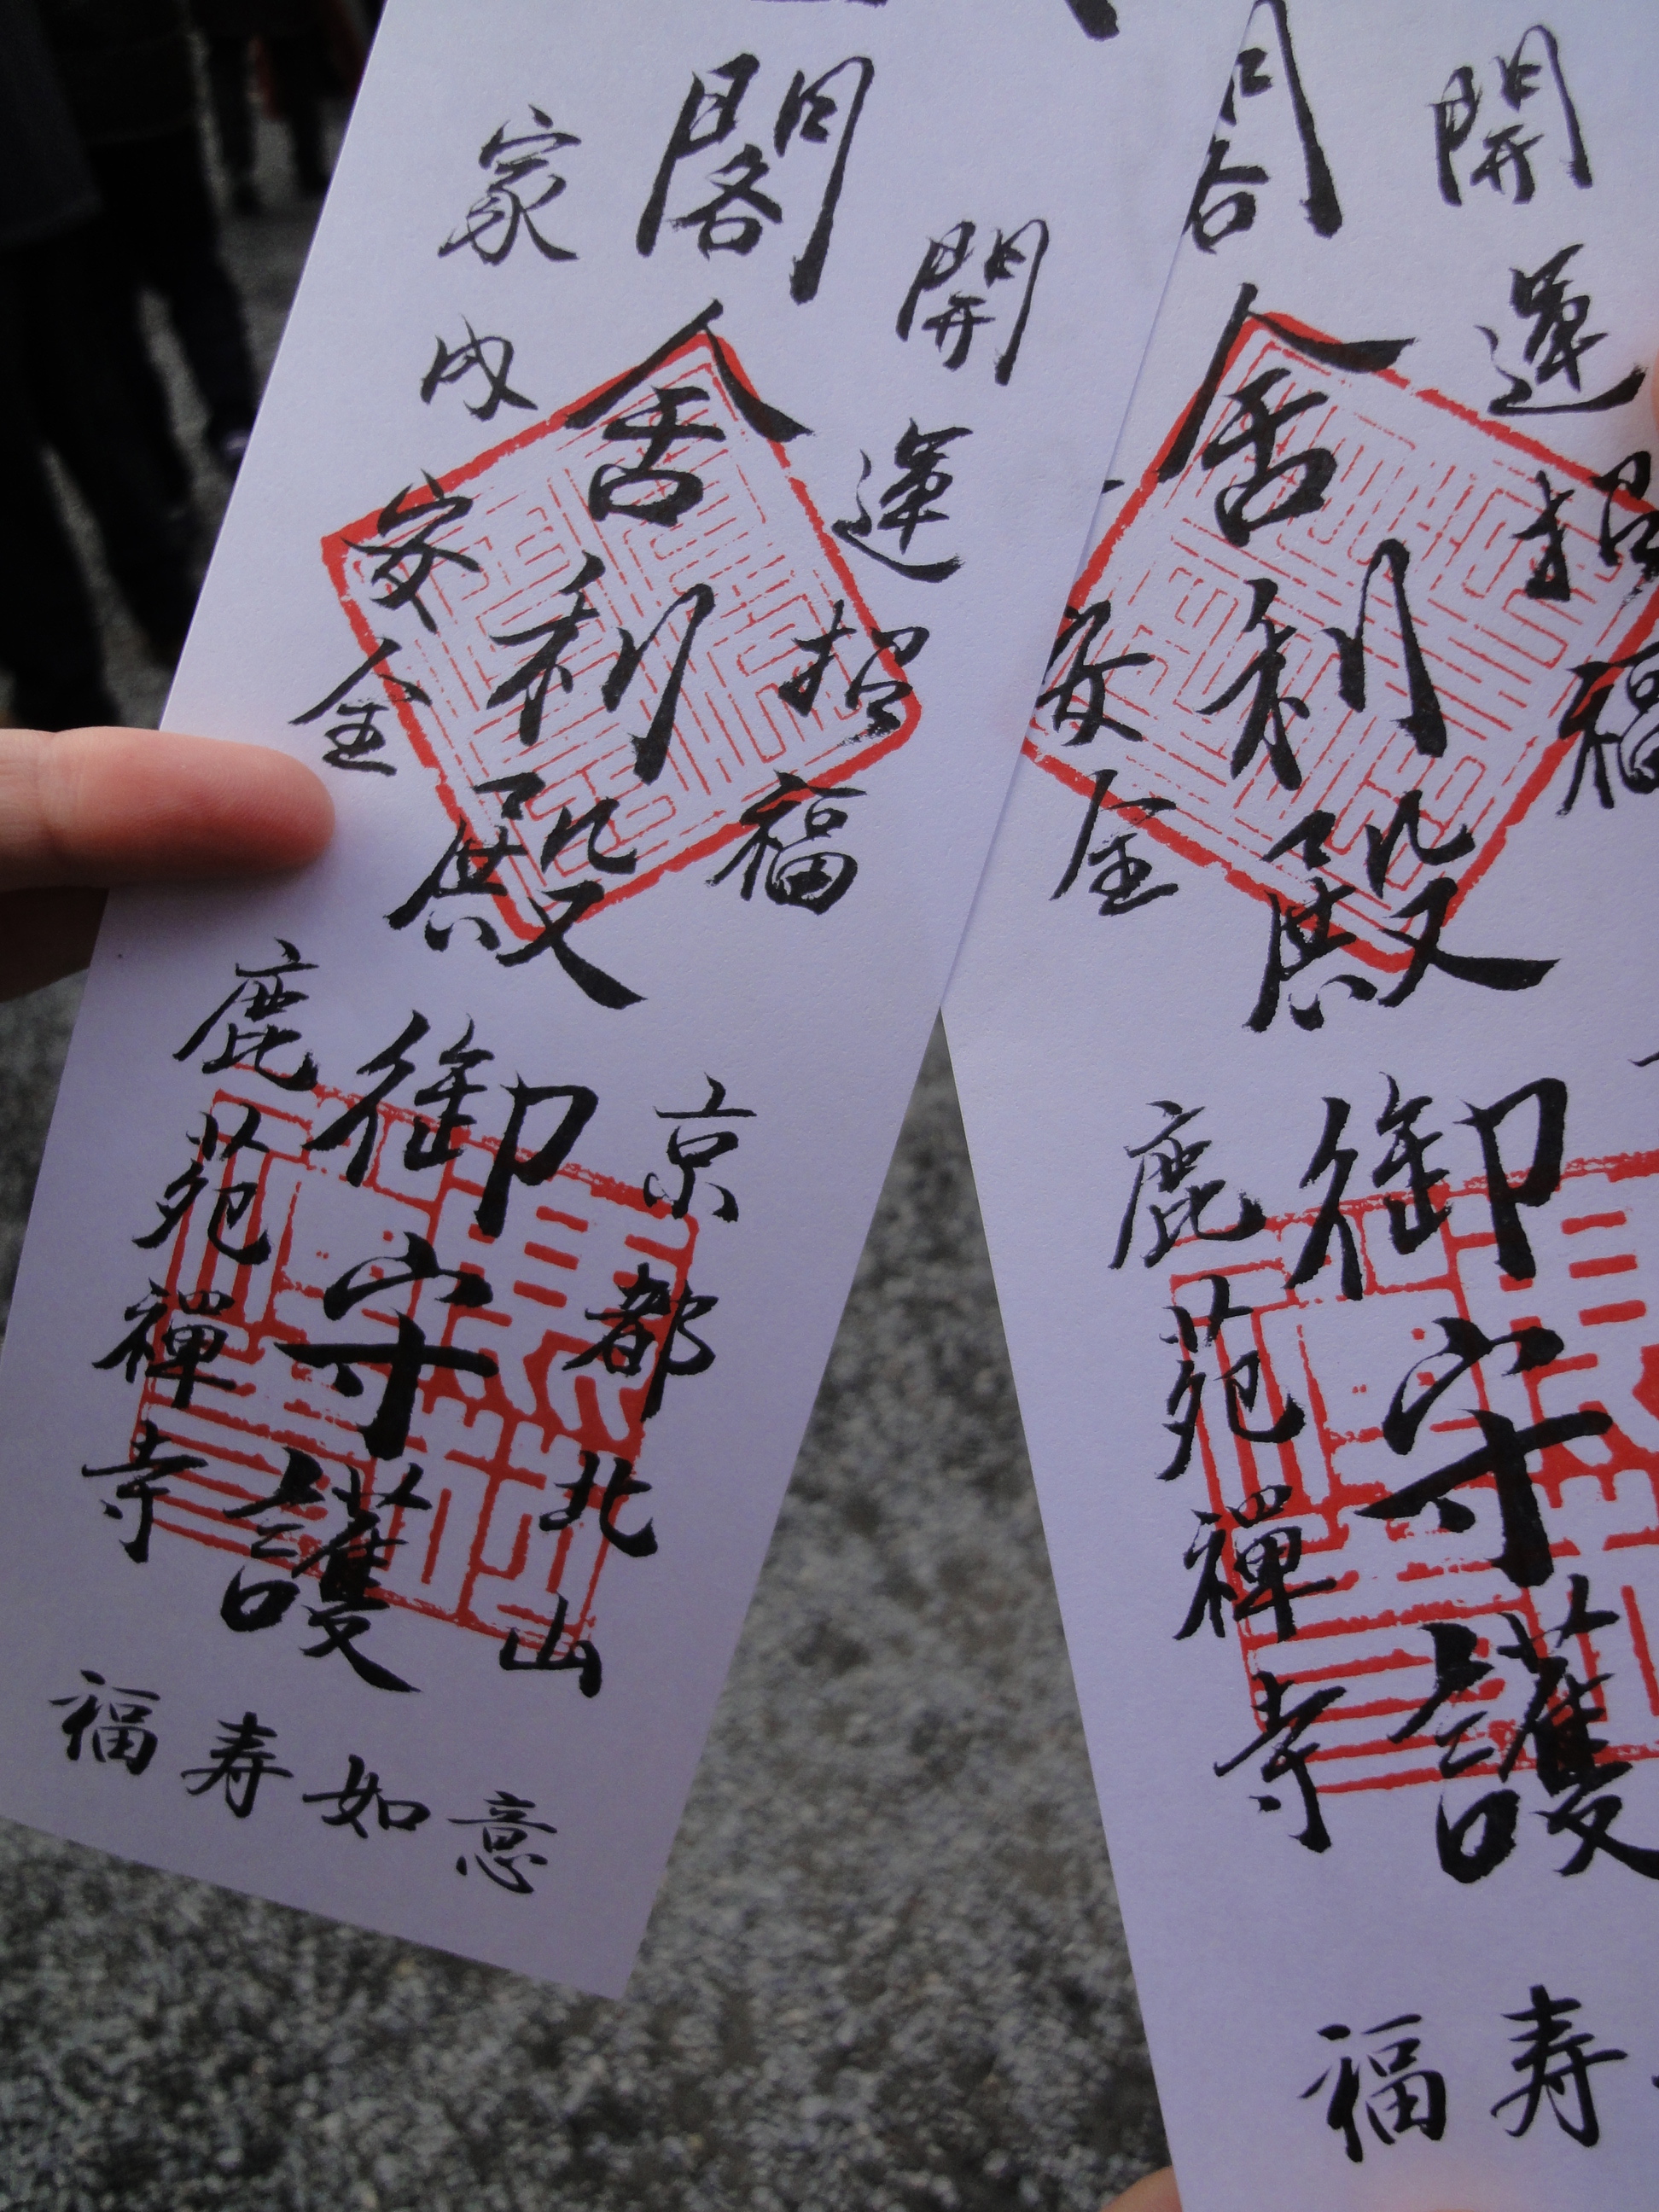 開運招福
閣舎利殿御守護
家内安全
京都北山
鹿苑禅寺
福寿如意
開運招福
閣舎利殿御守護
安全
鹿苑禅寺
福寿